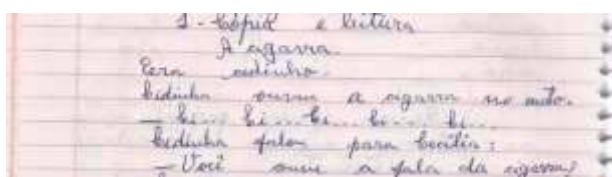 1 - Cópia e leitura
A cigarra
Era cedinho.
Cidinha ouviu a cigarra no mato.
— Ci... Ci... Ci... Ci... Ci...
Cidinha falou para Cecília:
— Você ouviu a fala da cigarra?